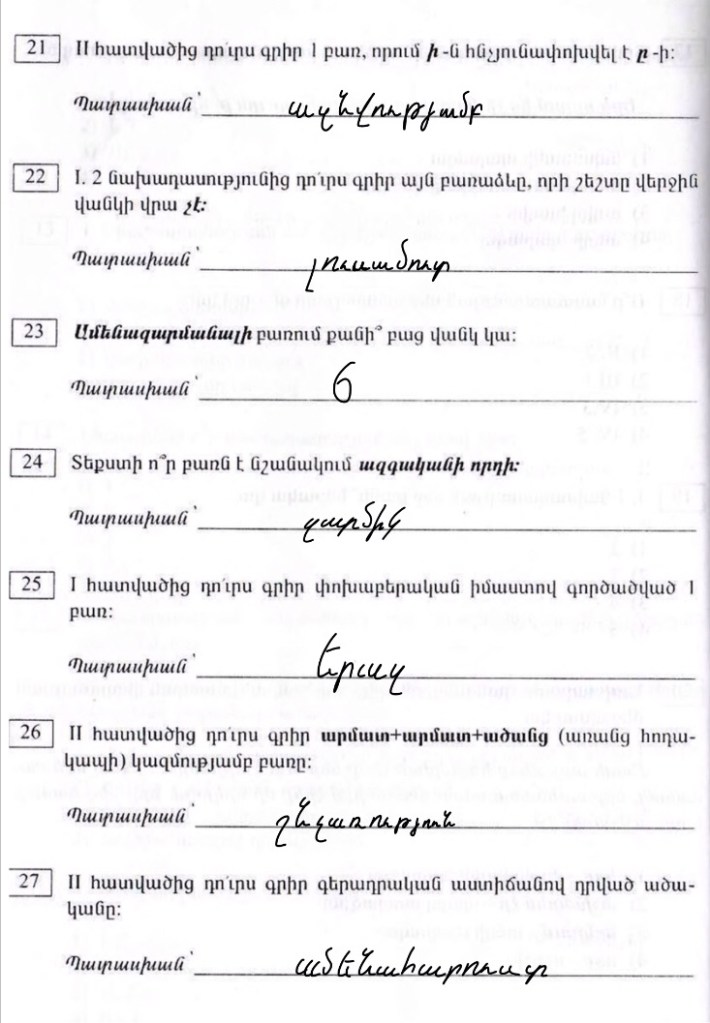 21 II հատվածից դո՛ւրս գրիր 1 բառ, որում ի -ն հնչյունափոխվել է ը -ի:
Պատասխան՝ ազնվությամբ
22 I. 2 նախադասությունից դո՛ւրս գրիր այն բառաձևը, որի շեշտը վերջին
վանկի վրա չէ:
Պատասխան՝ լուսամուտ
23 Ամենազարմանալի բառում քանի՞ բաց վանկ կա:
Պատասխան՝ 6
24 Տեքստի ո՞ր բառն է նշանակում ազգականի որդի:
Պատասխան՝ զարմիկ
25 I հատվածից դո՛ւրս գրիր փոխաբերական իմաստով գործածված 1
բառ:
Պատասխան՝ երակ
26 II հատվածից դո՛ւրս գրիր արմատ+արմատ+ածանց (առանց հոդա-
կապի) կազմությամբ բառը:
Պատասխան՝ շնչառություն
27 II հատվածից դո՛ւրս գրիր գերադրական աստիճանով դրված ածա-
կանը:
Պատասխան՝ ամենահարուստ